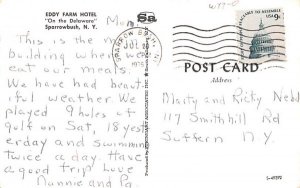 EDDY FARM HOTEL
"On the Delaware"
Sparrowbush, N. Y.
Mon
This is the main
building where we
eat our meals.
We have had beaut-
iful weather We
played 9 holes of
gulf on Sat, 18 yest-
erday and swimming
twice a day. Have
a good trip Love
Nannie and Pa.
SPARROW BUSH, N.Y.
JUL
USA 9c
POST CARD
Address
Marty and Ricky Nedd
117 Smithhill Rd
Suffern N.Y.